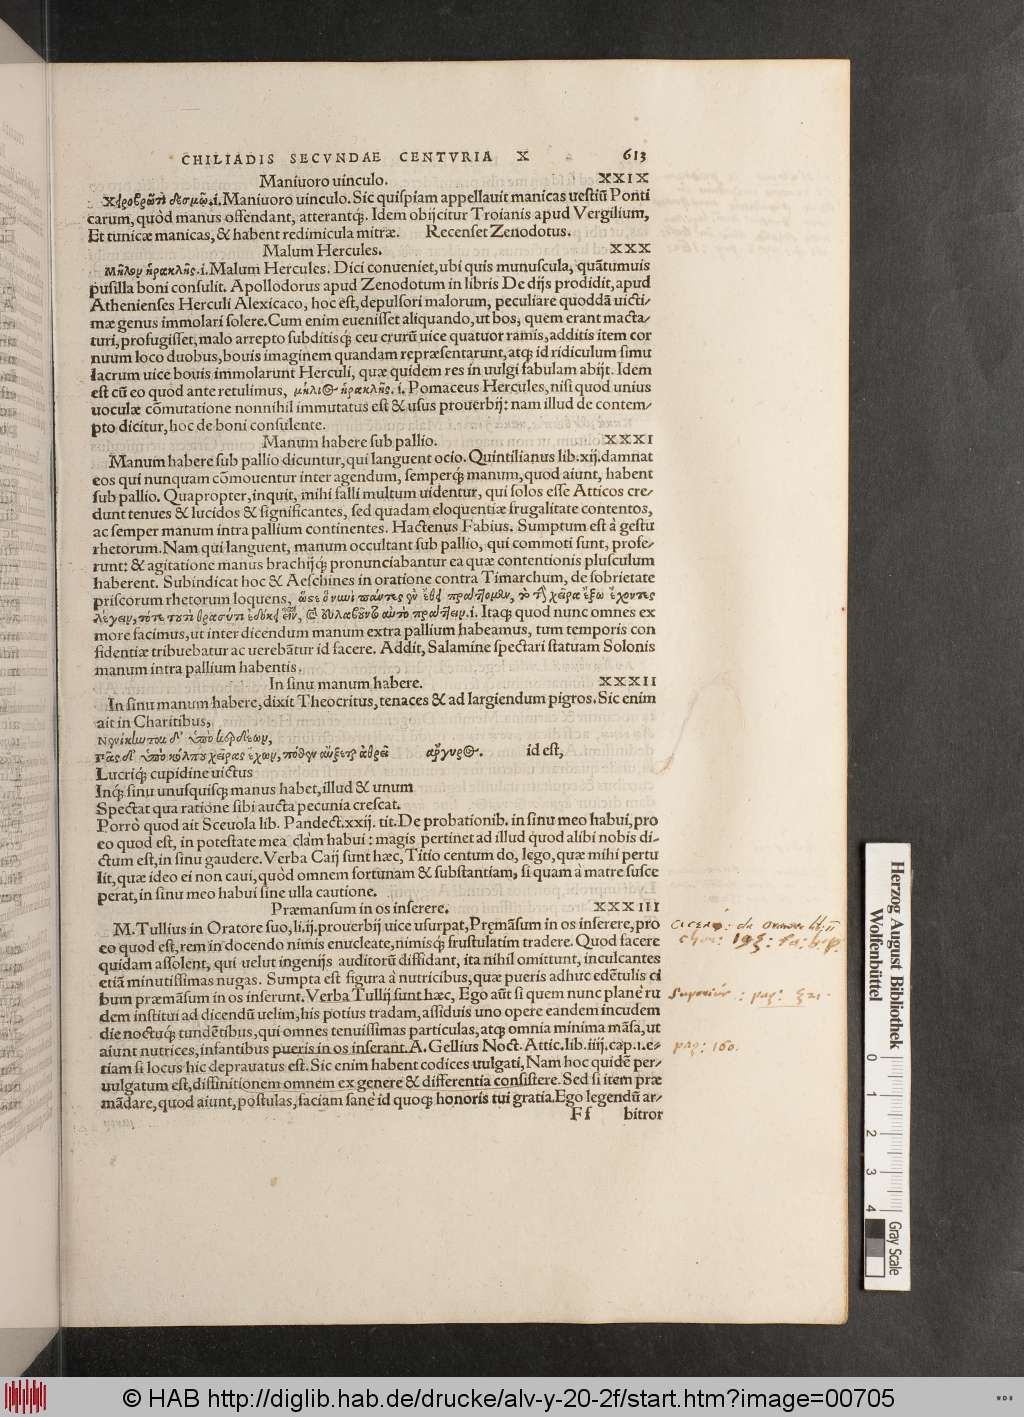 CHILIADIS SECVNDAE CENTVRIA X 613
Maniuoro uinculo. XXIX
χειροβρῶτι δεσμῷ.i. Maniuoro uinculo. Sic quispiam appellauit manicas uestiũ Ponti
carum, quòd manus offendant, atterantq́;. Idem obijcitur Troianis apud Vergilium,
Et tunicæ manicas, & habent redimicula mitræ. Recenset Zenodotus.
Malum Hercules. XXX
Μῆλον ἡρακλῆς.i. Malum Hercules. Dici conueniet, ubi quis munuscula, quãtumuis
pusilla boni consulit. Apollodorus apud Zenodotum in libris De dijs prodidit, apud
Athenienses Herculi Alexicaco, hoc est, depulsori malorum, peculiare quoddã uicti-
mæ genus immolari solere. Cum enim euenisset aliquando, ut bos, quem erant macta-
turi, profugisset, malo arrepto subditisq́; ceu crurũ uice quatuor ramis, additis item cor
nuum loco duobus, bouis imaginem quandam repræsentarunt, atq; id ridiculum simu
lacrum uice bouis immolarunt Herculi, quæ quidem res in uulgi fabulam abijt. Idem
est cũ eo quod ante retulimus, μήλιος ἡρακλῆς.i. Pomaceus Hercules, nisi quod unius
uoculæ cõmutatione nonnihil immutatus est & usus prouerbij: nam illud de contem-
pto dicitur, hoc de boni consulente.
Manum habere sub pallio. XXXI
Manum habere sub pallio dicuntur, qui languent ocio. Quintilianus lib.xij. damnat
eos qui nunquam cõmouentur inter agendum, semperq́; manum, quod aiunt, habent
sub pallio. Quapropter, inquit, mihi falli multum uidentur, qui solos esse Atticos cre-
dunt tenues & lucidos & significantes, sed quadam eloquentiæ frugalitate contentos,
ac semper manum intra pallium continentes. Hactenus Fabius. Sumptum est à gestu
rhetorum. Nam qui languent, manum occultant sub pallio, qui commoti sunt, profe-
runt: & agitatione manus brachijq́; pronunciabantur ea quæ contentionis plusculum
haberent. Subindicat hoc & Aeschines in oratione contra Timarchum, de sobrietate
priscorum rhetorum loquens, πάντες ἐν ἔθει πράττομεν, τὸ τὴν χεῖρα ἔξω ἔχοντες
λέγειν, τότε τοῦτο θρασύ τι ἐδόκει εἶναι, πράττειν.i. Itaq; quod nunc omnes ex
more facimus, ut inter dicendum manum extra pallium habeamus, tum temporis con
fidentiæ tribuebatur ac uerebãtur id facere. Addit, Salamine spectari statuam Solonis
manum intra pallium habentis.
In sinu manum habere. XXXII
In sinu manum habere, dixit Theocritus, tenaces & ad largiendum pigros. Sic enim
ait in Charitibus,
Νενίκηνται δ' ὑπὸ κερδέων,
Πᾶς δ' ὑπὸ κόλπου χεῖρας ἔχων, πόθεν αὔξεται ἀθρεῖ ἄργυρος. id est,
Lucriq́; cupidine uictus
Inq́; sinu unusquisq; manus habet, illud & unum
Spectat qua ratione sibi aucta pecunia crescat.
Porrò quod ait Sceuola lib. Pandect.xxij. tit. De probationib. in sinu meo habui, pro
eo quod est, in potestate mea clàm habui: magis pertinet ad illud quod alibi nobis di-
ctum est, in sinu gaudere. Verba Caij sunt hæc, Titio centum do, lego, quæ mihi pertu
lit, quæ ideo ei non caui, quòd omnem fortunam & substantiam, si quam à matre susce
perat, in sinu meo habui sine ulla cautione.
Præmansum in os inserere. XXXIII
M. Tullius in Oratore suo, li.ij. prouerbij uice usurpat, Præmãsum in os inserere, pro
eo quod est, rem in docendo nimis enucleate, nimisq́; frustulatim tradere. Quod facere
quidam assolent, qui uelut ingenijs auditorũ diffidant, ita nihil omittunt, inculcantes
etiã minutissimas nugas. Sumpta est figura à nutricibus, quæ pueris adhuc edẽtulis ci
bum præmãsum in os inserunt. Verba Tullij sunt hæc, Ego aũt si quem nunc planè ru
dem institui ad dicendũ uelim, his potius tradam, assiduis uno opere eandem incudem
die noctuq́; tundẽtibus, qui omnes tenuissimas particulas, atq; omnia minima mãsa, ut
aiunt nutrices, infantibus pueris in os inserant. A. Gellius Noct. Attic. lib.iiij. cap.1. e-
tiam si locus hic deprauatus est. Sic enim habent codices uulgati, Nam hoc quidẽ per-
uulgatum est, diffinitionem omnem ex genere & differentia consistere. Sed si item præ
mãdare, quod aiunt, postulas, faciam sanè id quoq; honoris tui gratia. Ego legendũ ar-
Ff bitror
Cicero: de orator lib: ii
pag: 160.
Herzog August Bibliothek
Wolfenbüttel
0 1 2 3 4
Gray Scale
© HAB http://diglib.hab.de/drucke/alv-y-20-2f/start.htm?image=00705